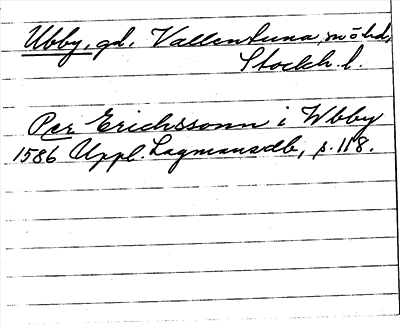 Ubby, gd, Vallentuna, snöbd,
Stockh. l.
Per Erichssonn i Wbby
1586 Uppl. Lagmansdb, s. 118.